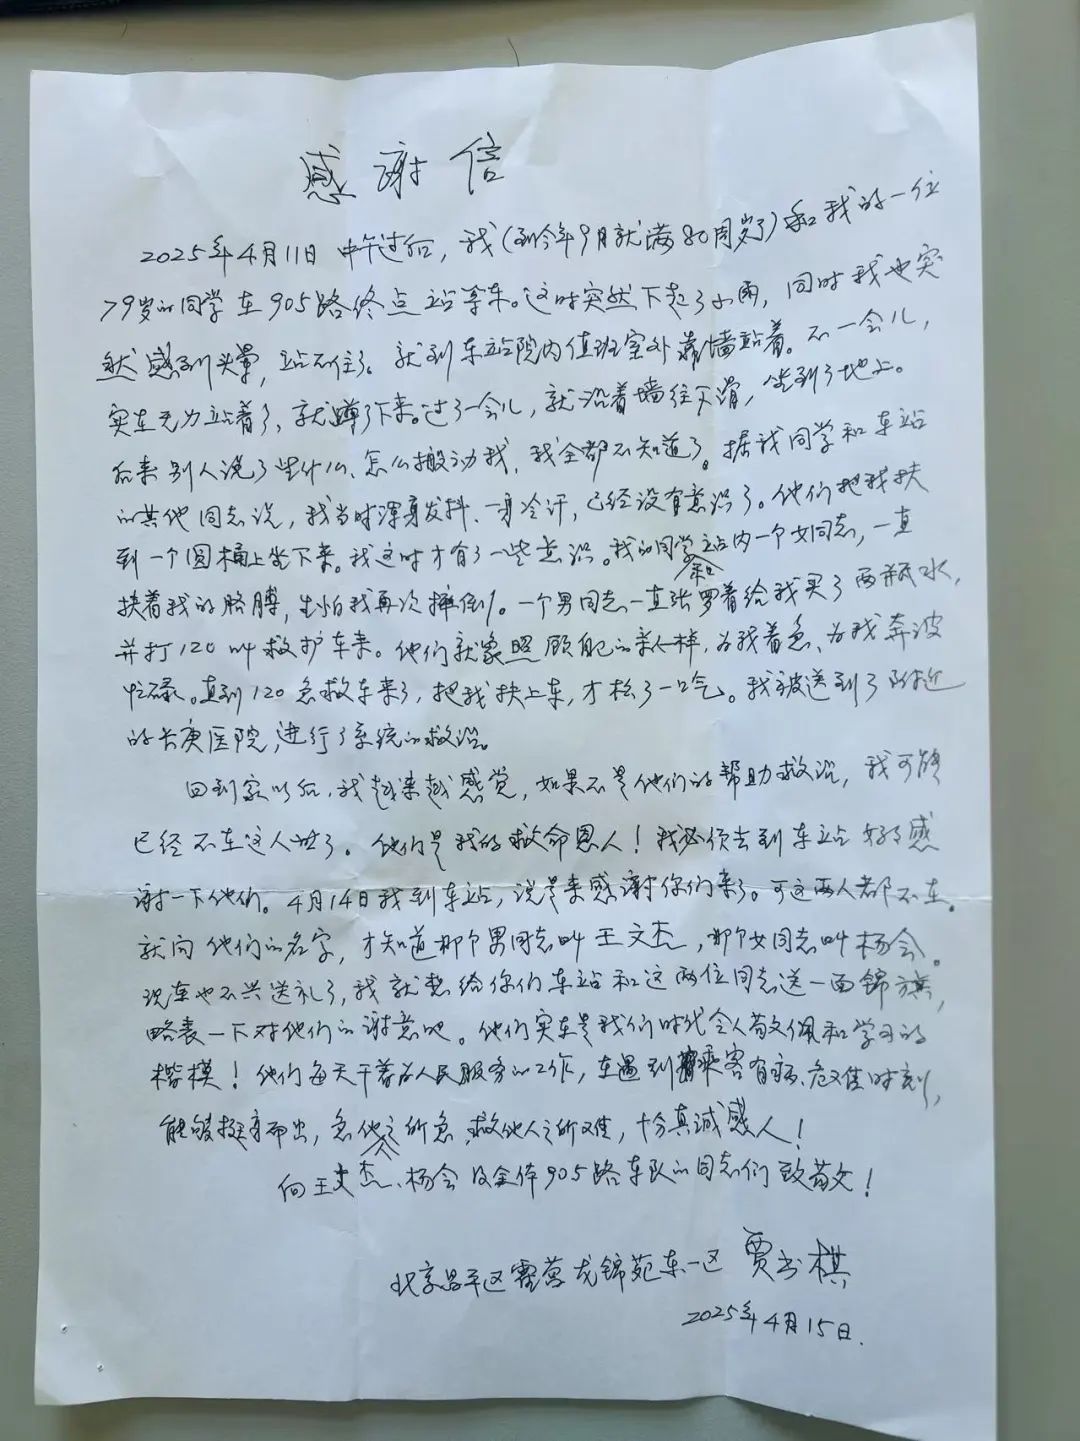 感谢信
2025年4月11日中午过后，我(到今年9月就满80周岁了)和我的一位
79岁的同学在905路终点站等车。这时突然下起了小雨，同时我也突
然感到头晕，站不住了。就到车站院内值班室外靠墙站着。不一会儿，
实在无力站着了，就蹲了下来。过了一会儿，就沿着墙往下滑，坐到了地上。
后来别人说了些什么、怎么搬动我，我全都不知道了。据我同学和车站
的其他同志说，我当时浑身发抖、一身冷汗，已经没有意识了。他们把我扶
到一个圆桶上坐下来。我这时才有了一些意识。我的同学和站内一个女同志，一直
扶着我的胳膊，生怕我再次摔倒。一个男同志一直张罗着给我买了两瓶水，
并打120叫救护车来。他们就象照顾自己的亲人一样，为我着急、为我奔波
忙碌。直到120急救车来了，把我扶上车，才松了一口气。我被送到了附近
的长庚医院，进行了系统的救治。
回到家以后，我越来越感觉，如果不是他们的帮助救治，我可能
已经不在这人世了。他们是我的救命恩人！我必须去到车站好好感
谢一下他们。4月14日我到车站，说是来感谢你们来了。可这两人都不在。
就问他们的名字，才知道那个男同志叫王文杰，那个女同志叫杨会。
现在也不兴送礼了，我就想给你们车站和这两位同志送一面锦旗，
略表一下对他们的谢意吧。他们实在是我们时代令人敬佩和学习的
楷模！他们每天干着为人民服务的工作，在遇到乘客有病、危难时刻，
能够挺身而出，急他人之所急，救他人之所难，十分真诚感人！
向王文杰、杨会及全体905路车队的同志们致敬！
北京昌平区霍营龙锦苑东一区 贾书棋
2025年4月15日.